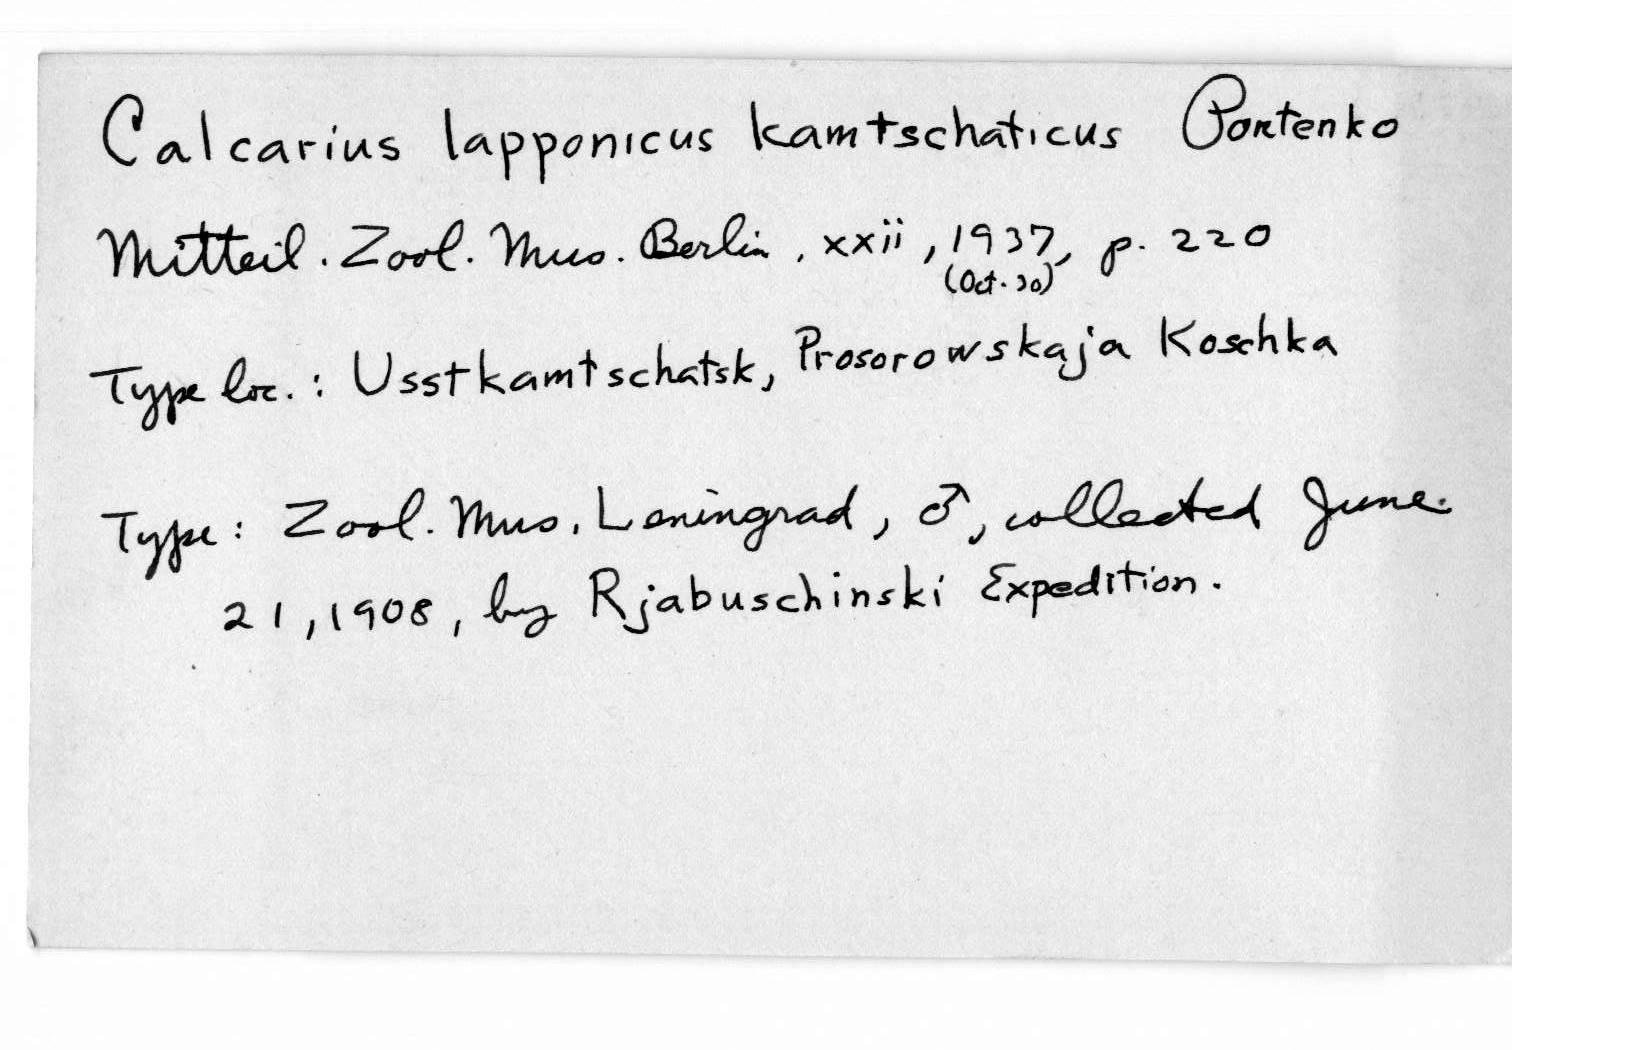 Calcarius lapponicus kamtschaticus Portenko
Mitteil. Zool. Mus. Berlin, xxii, 1937, p. 220
(Oct. 30)
Type loc.: Usstkamtschatsk, Prosorowskaja Koschka
Type: Zool. Mus. Leningrad, ♂, collected June
21, 1908, by Rjabuschinski Expedition.